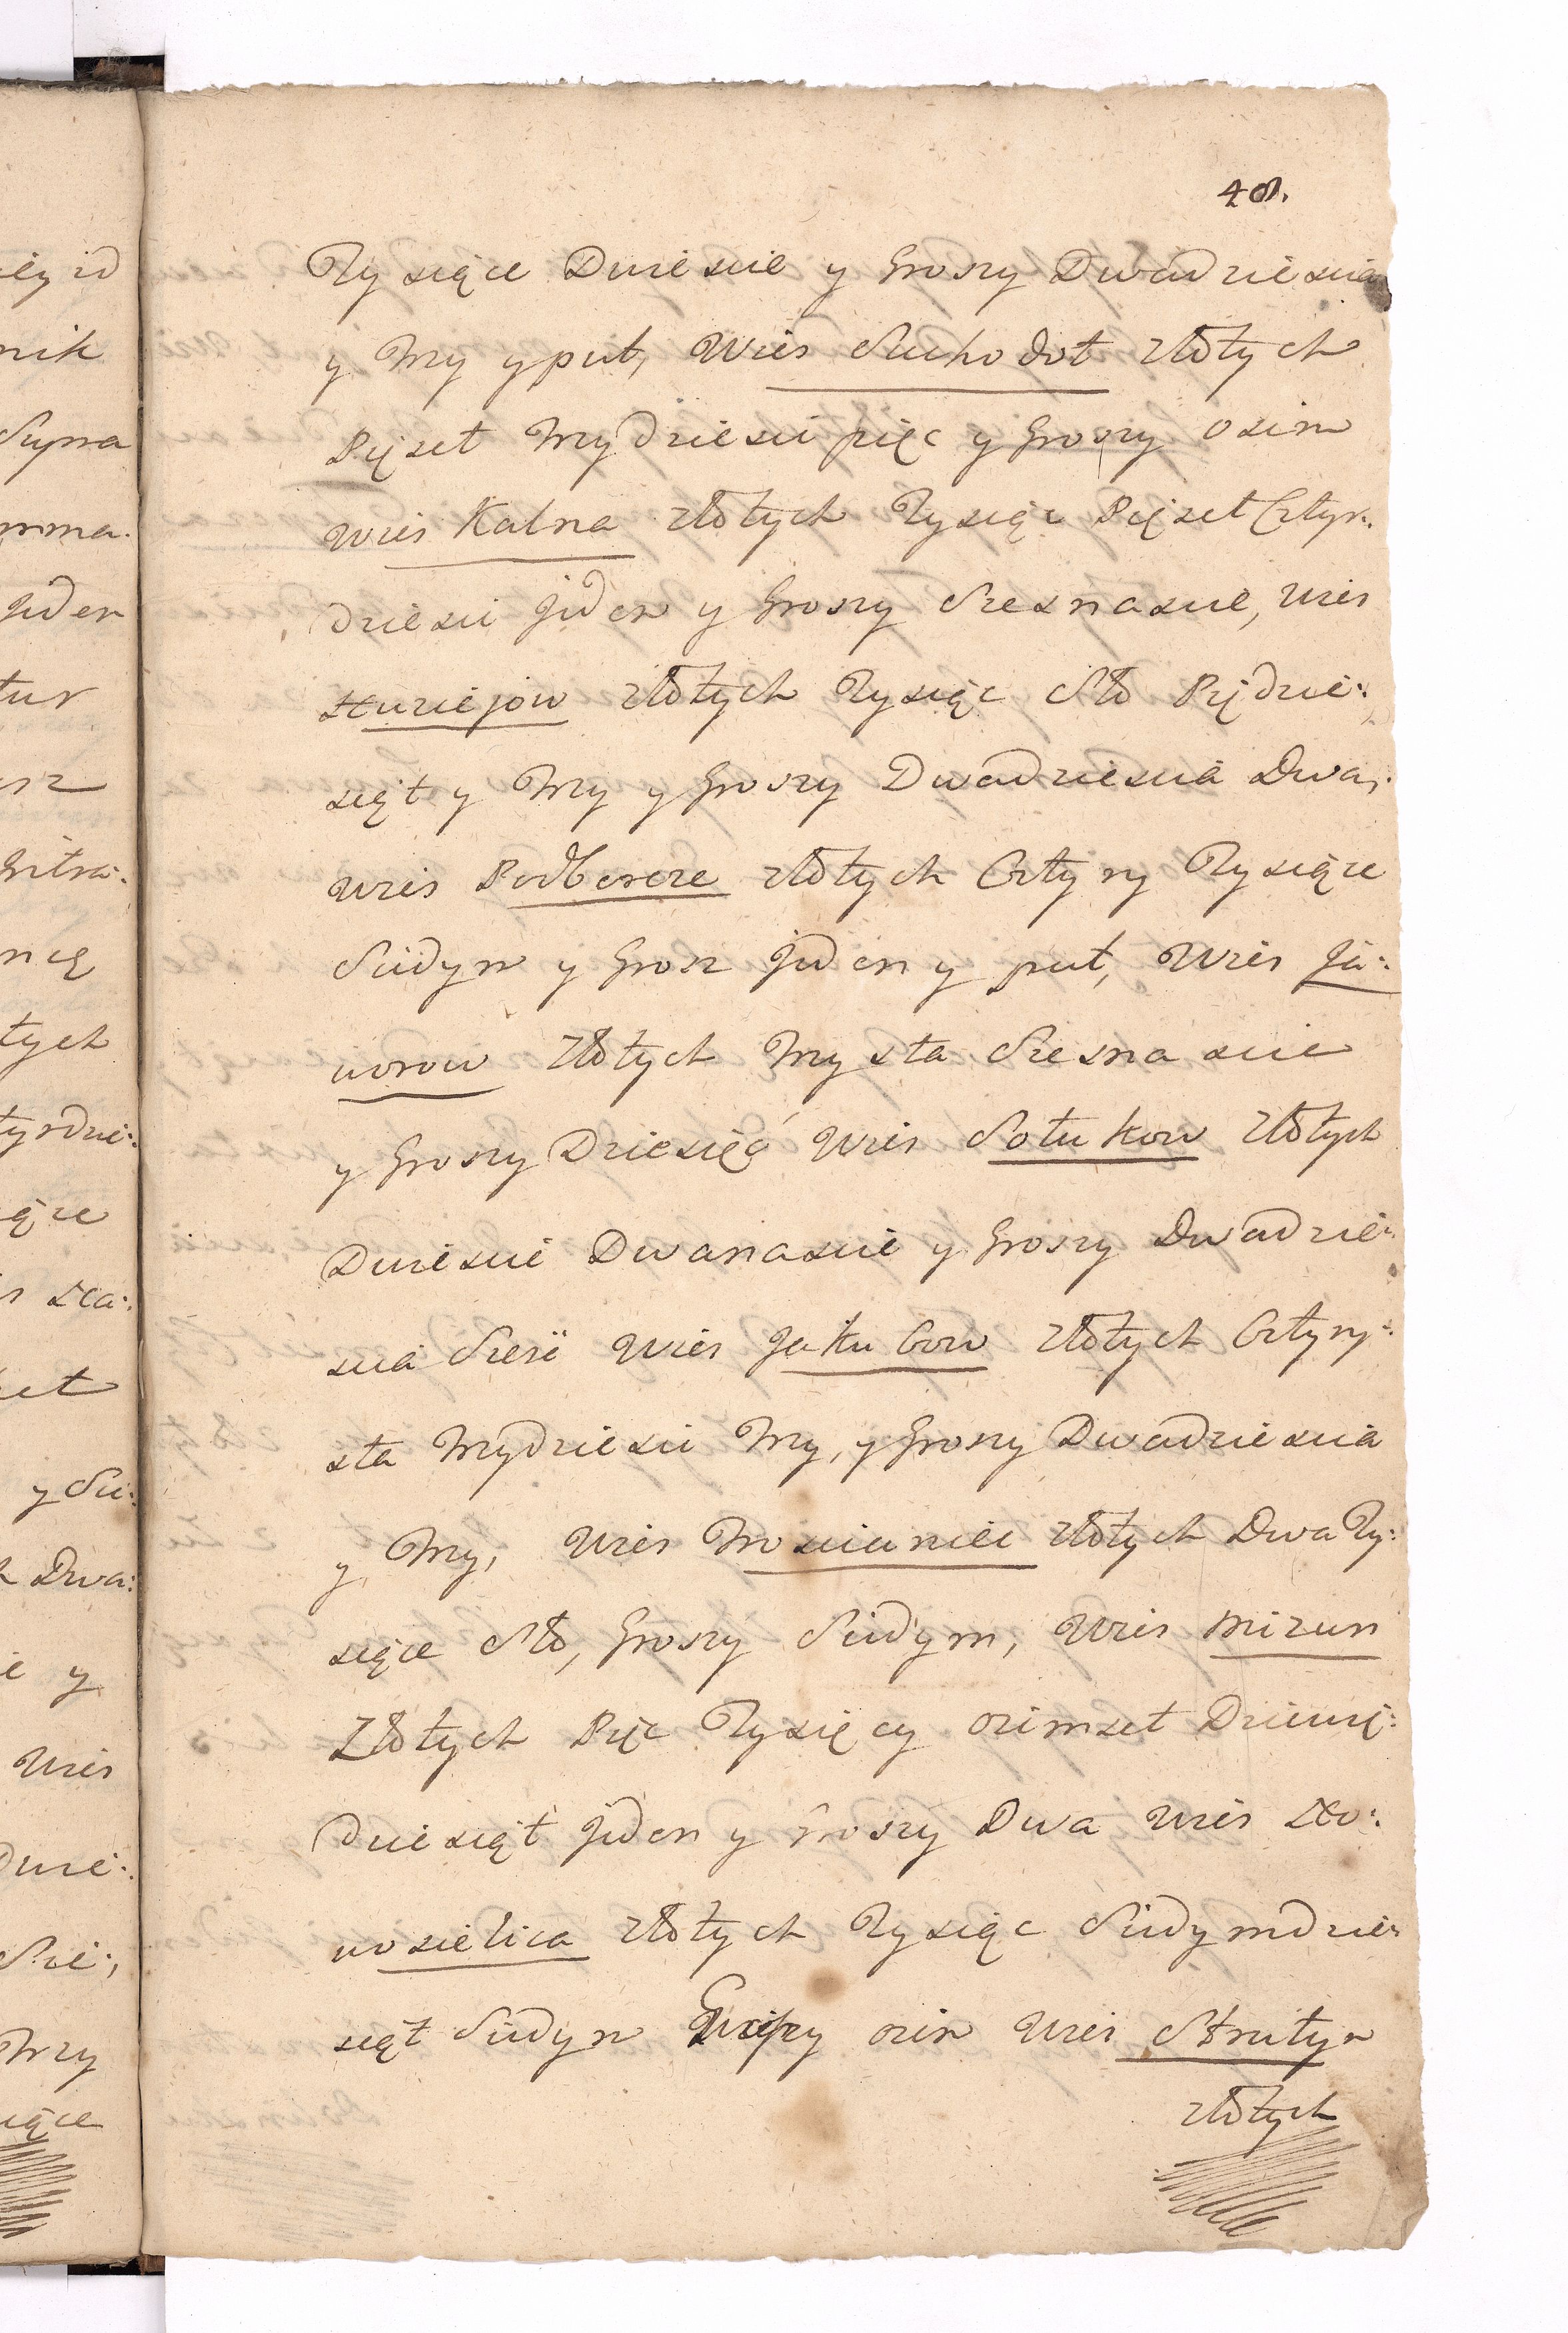 48.
Tysiące Dwiescie y Groszy Dwadziescia
y Trzy y puł, Wies Suchodoł złotych
Pięset Trzydziesci pięc y Groszy osim
Wies Kalna złotych Tysiąc Pięset Cztyr:
dziesci jeden y Groszy Szesnascie, Wies
złotych Tysiąc Sto Piędzie:
siąt y Trzy y Groszy Dwadziescia Dwa,
Wies Podberere złotych Cztyry Tysiące
Siedym y Grosz jeden y puł, Wies Ja:
worow złotych Trzysta Szesnascie
y Groszy Dziesięć Wies Sołukow złotych
Dwiescie Dwanascie y Groszy Dwadzie:
scia Szesć Wies Jakubow złotych Cztyry:
sta Trzydziesci Trzy, y Groszy Dwadziescia
y Trzy, Wies Trościaniec złotych Dwa Ty:
siące Sto, Groszy Siedym, Wies Mizun
Złotych Pięc Tysięcy osimset Dziewię:
dziesiąt jeden y Groszy Dwa Wies
wosielica złotych Tysiąc Siedymdzie:
siąt Siedym Groszy osim Wies Strutyn
złotych